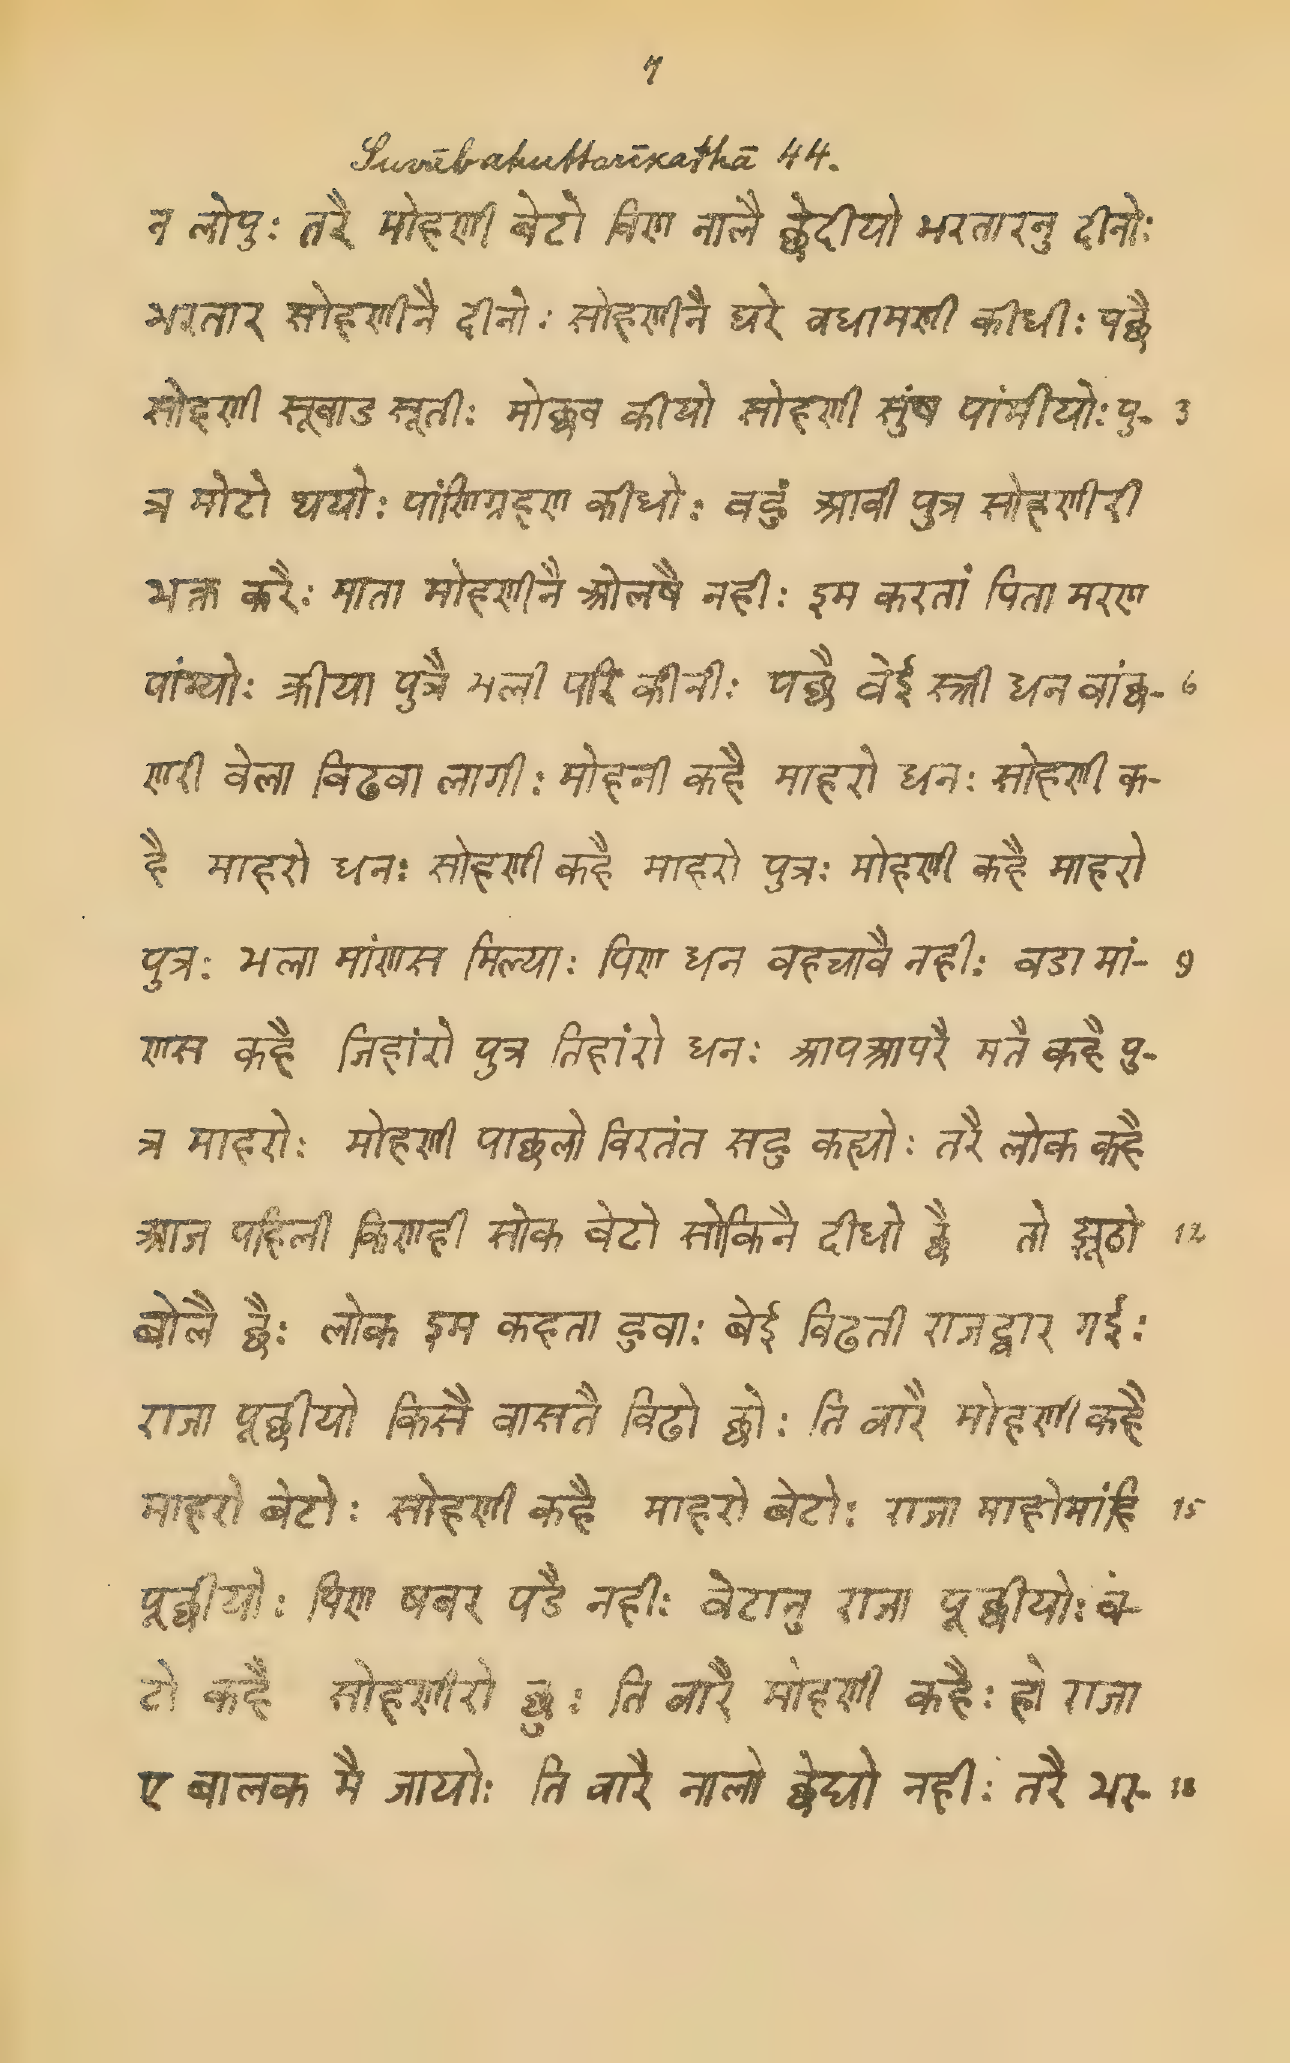 7
Suvābahuttarīkathā 44.
न लोपुः तरै मोहणी बेटो विण नालै छेदीयो भरतारनु दीनोः
भरतार सोहणीनै दीनोः सोहणीनै घरे वधामणी कीधीः पछै
सोहणी सूवाड सूतीः मोछव कीयो सोहणी सुंष पांमीयोः पु- 3
त्र मोटो थयोः पांणिग्रहण कीधोः वहुं आवी पुत्र सोहणीरी
भक्त करैः माता मोहणीनै ओलषै नहीः इम करतां पिता मरण
पांम्योः क्रीया पुत्रै भली परि कीनीः पछै वेई स्त्री धन वांछ- 6
णरी वेला विढवा लागीः मोहनी कहै माहरो धनः सोहणी क-
है माहरो धनः सोहणी कहै माहरो पुत्रः मोहणी कहै माहरो
पुत्रः भला मांणस मिल्याः पिण धन वहचावै नहीः वडा मां- 9
णस कहै जिहांरो पुत्र तिहांरो धनः आपआपरै मतै कहै पु-
त्र माहरोः मोहणी पाछलो विरतंत सहु कह्योः तरै लोक कहै
आज पहिली किणही सोक बेटो सोकिनै दीधो छै तो झूठो 12
बोलै छैः लोक इम कहता हुवाः बेई विढती राजद्वार गईः
राजा पूछीयो किसै वासतै विढो छोः ति वारै मोहणी कहै
माहरो बेटोः सोहणी कहै माहरो बेटोः राजा माहोमांहि 15
पूछीयोः पिण षबर पडै नहीः वेटानु राजा पूछीयोः बे-
टो कहै सोहणीरो छुः ति वारै मोहणी कहैः हो राजा
ए बालक मै जायोः ति वारै नालो छेद्यो नहीः तरै भर- 18